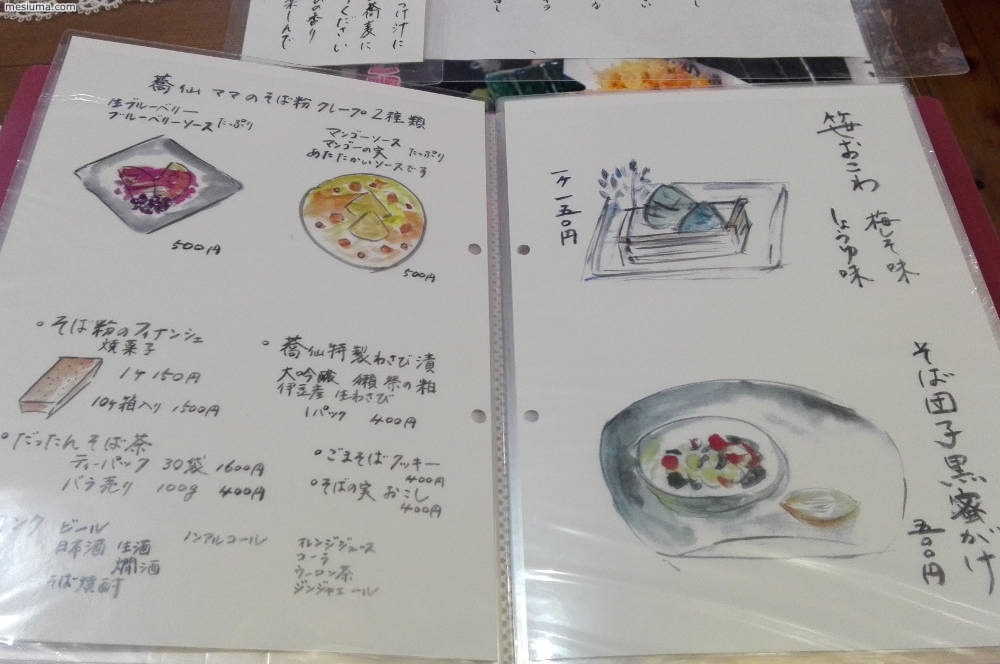 mesiuma.com
つけ汁に
蕎麦に
ください
の香り
楽しんで
蕎仙 ママのそば粉クレープ2種類
生ブルーベリー
ブルーベリーソースたっぷり
500円
マンゴーソース
マンゴーの実 たっぷり
あたたかいソースです
500円
。そば粉のフィナンシェ
焼菓子
1ケ 150円
10ケ箱入り 1500円
。だったんそば茶
ティーパック 30袋 1600円
バラ売り 100g 400円
。蕎仙特製わさび漬
大吟醸 獺祭の粕
伊豆産 生わさび
1パック 400円
。ごまそばクッキー
400円
。そばの実 おこし
400円
リンク ビール
日本酒 生酒
燗酒
そば焼酎
ノンアルコール
オレンジジュース
コーラ
ウーロン茶
ジンジャエール
笹おこわ
梅しそ味
しょうゆ味
一ケ一五〇円
そば団子黒蜜がけ
五〇〇円